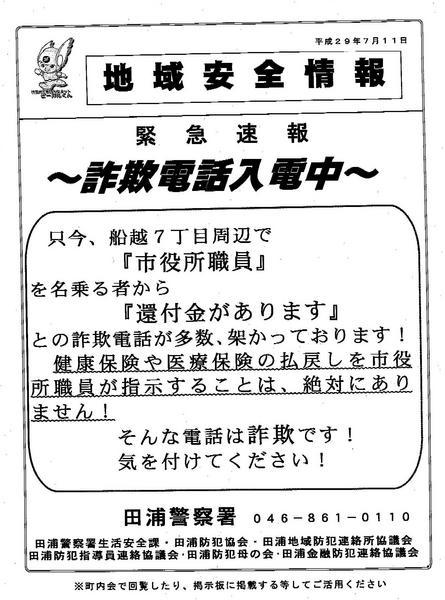 平成29年7月11日
地域安全情報
緊急速報
～詐欺電話入電中～
只今、船越7丁目周辺で
『市役所職員』
を名乗る者から
『還付金があります』
との詐欺電話が多数、架かっております！
健康保険や医療保険の払戻しを市役
所職員が指示することは、絶対にあり
ません！
そんな電話は詐欺です！
気を付けてください！
田浦警察署 046-861-0110
田浦警察署生活安全課・田浦防犯協会・田浦地域防犯連絡所協議会
田浦防犯指導員連絡協議会・田浦防犯母の会・田浦金融防犯連絡協議会
※町内会で回覧したり、掲示板に掲載する等してご活用ください